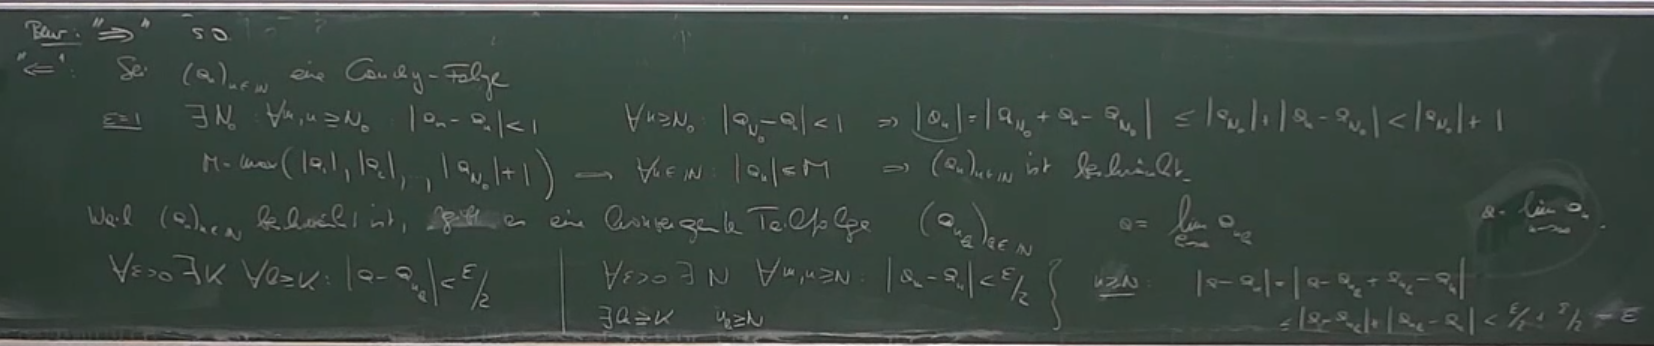 Bew: "⇒" so
"⇐": Sei (a_n)_{n∈ℕ} eine Cauchy-Folge
ε=1 ∃N_0 ∀m,n≥N_0: |a_m - a_n|<1 ∀n≥N_0: |a_{N_0} - a_n|<1 ⇒ |a_n| = |a_{N_0} + a_n - a_{N_0}| ≤ |a_{N_0}| + |a_n - a_{N_0}| < |a_{N_0}| + 1
M = max(|a_1|, |a_2|, .., |a_{N_0}|+1) ⇒ ∀n∈ℕ: |a_n| ≤ M ⇒ (a_n)_{n∈ℕ} ist beschränkt.
Weil (a_n)_{n∈ℕ} beschränkt ist, gibt es eine konvergente Teilfolge (a_{n_k})_{k∈ℕ} a = lim_{k→∞} a_{n_k} a = lim_{n→∞} a_n.
∀ε>0 ∃K ∀k≥K: |a - a_{n_k}| < ε/2 | ∀ε>0 ∃N ∀m,n≥N: |a_m - a_n| < ε/2 } n≥N: |a - a_n| = |a - a_{n_k} + a_{n_k} - a_n|
∃k≥K n_k≥N ≤ |a - a_{n_k}| + |a_{n_k} - a_n| < ε/2 + ε/2 = ε